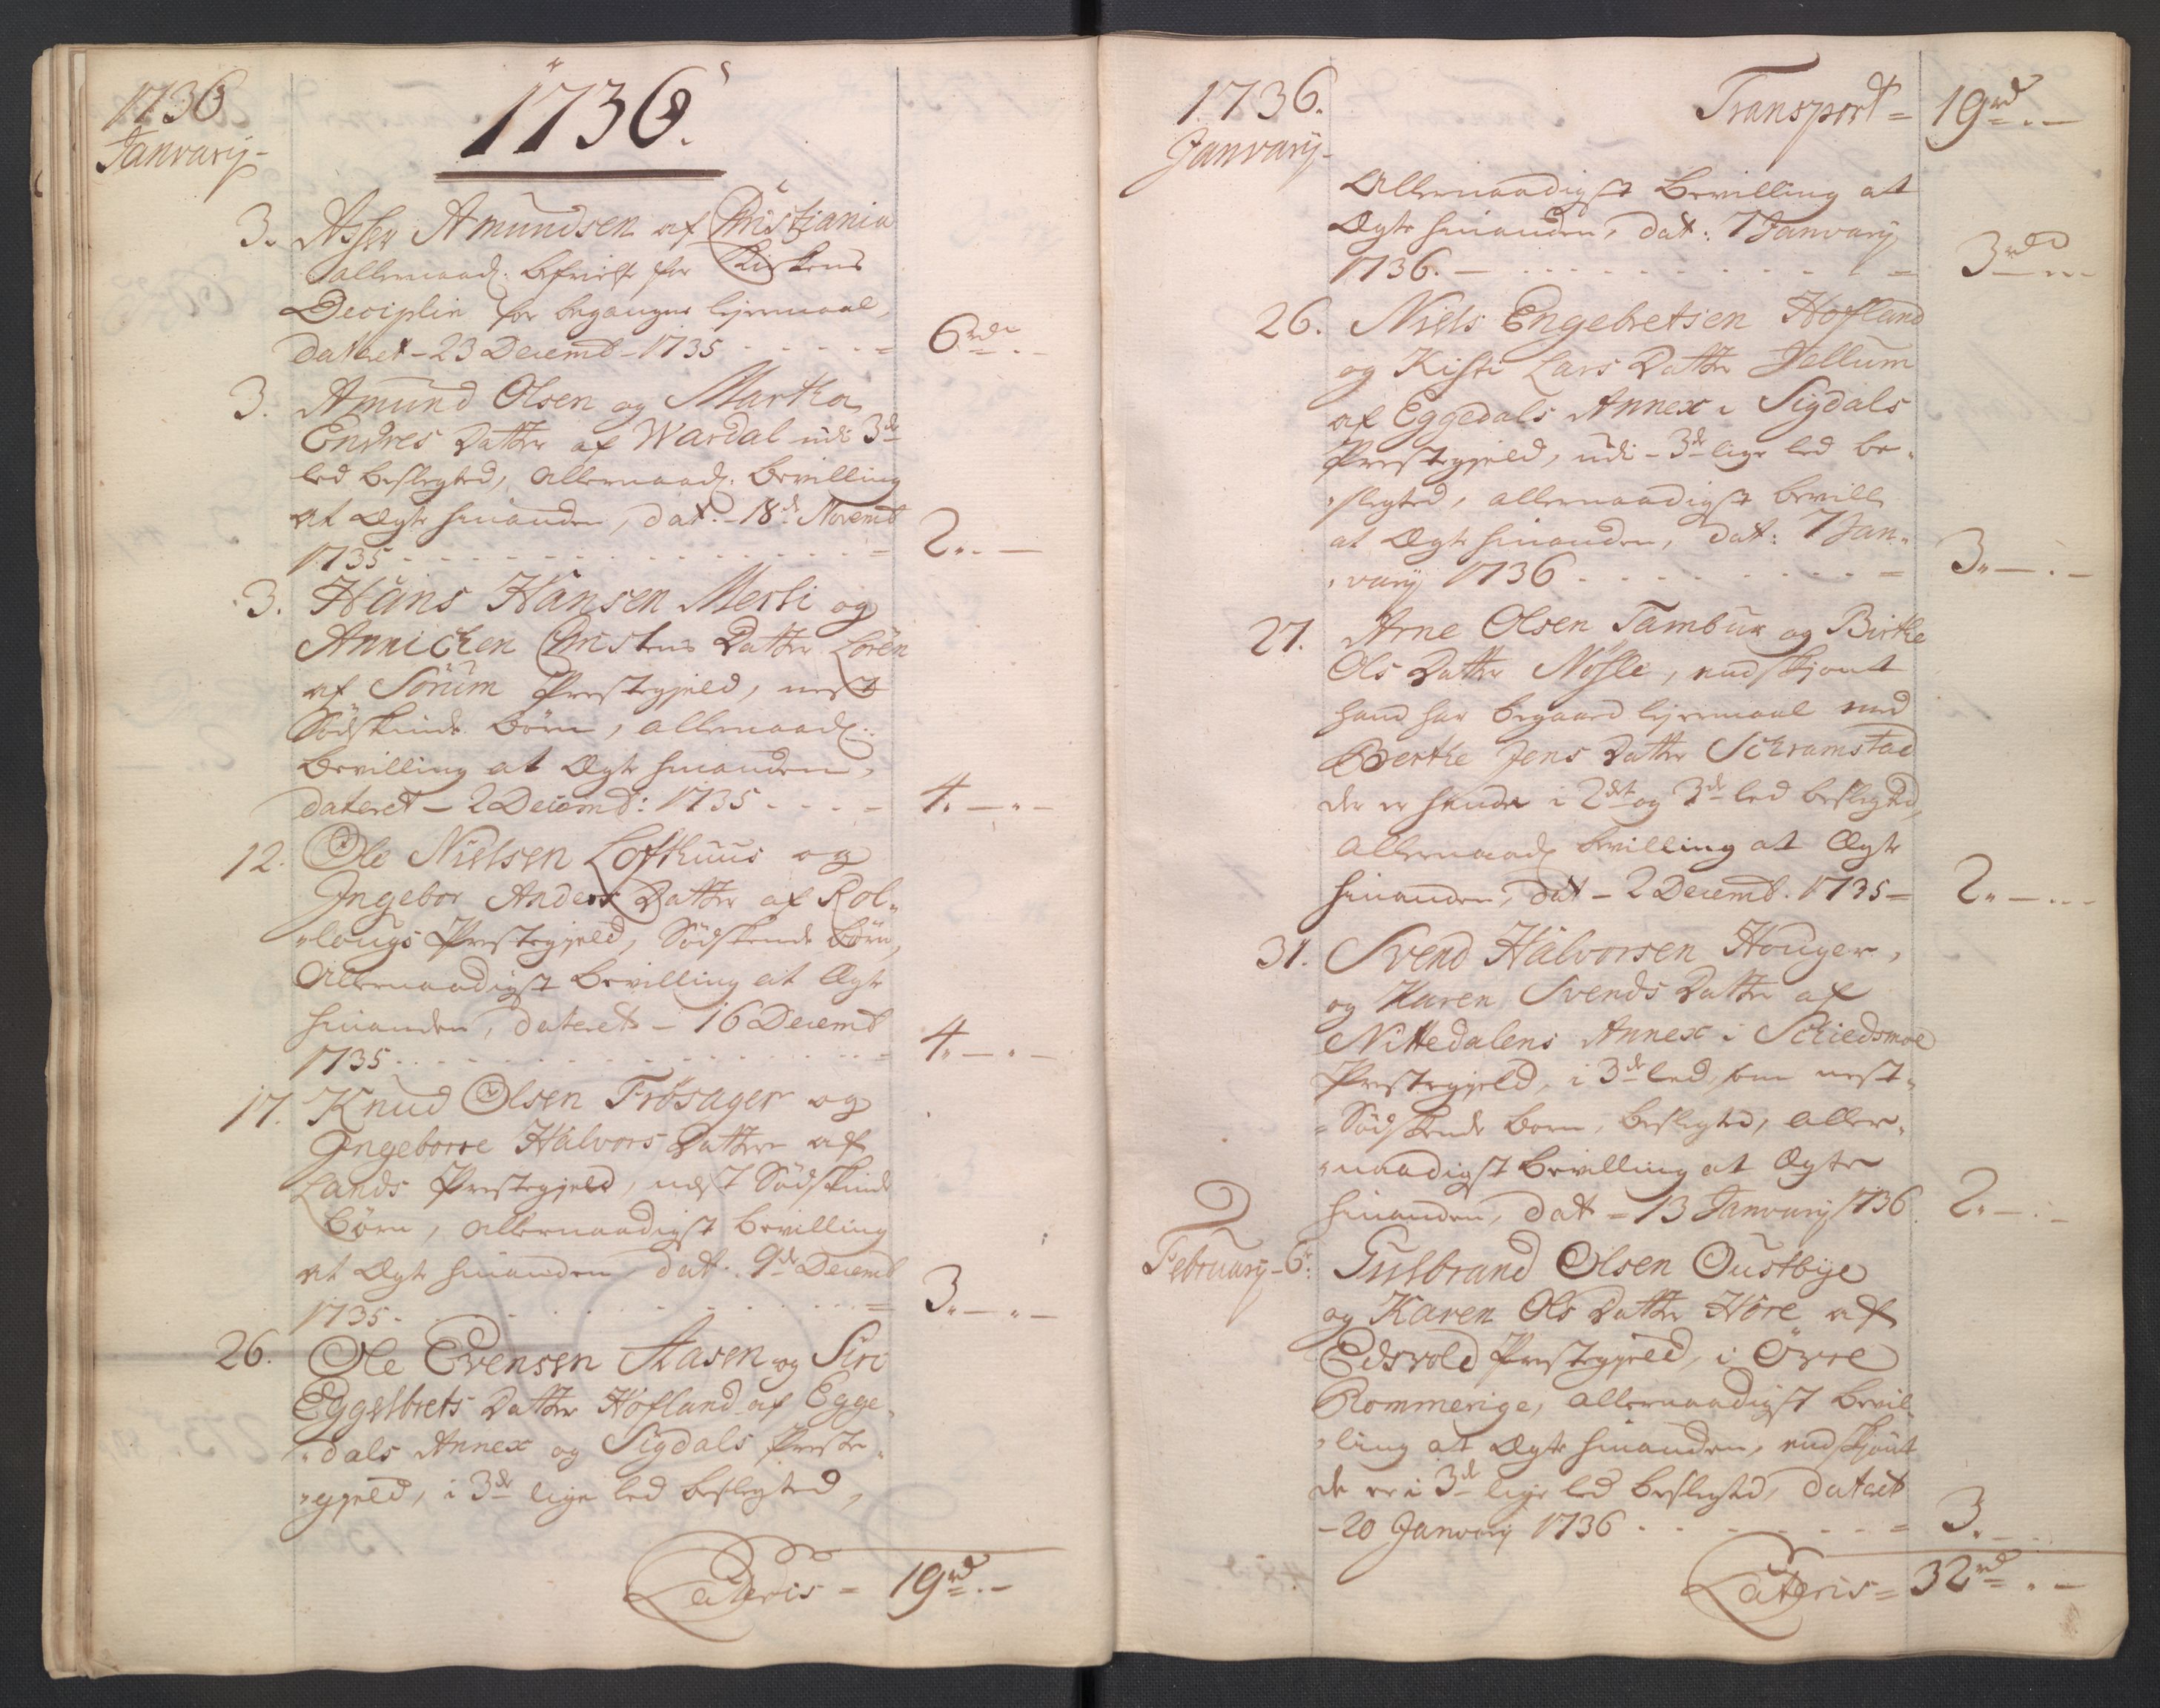 1736
January
1736.
3. Asser Amundsen af Christiania
allernaad: befriest for Kirkens
Deciplin for begangne leyermaal,
dateret - 23 Decemb - 1735 - - - - = 6 rdr
3. Amund Olsen og Martha
Endres Datter af Wardal udi 3de
led beslegted, allernaad: bevilling
at Ægte hinanden, dat: - 18de Novemb
1735 - - - - = 2 „ - —
3. Hans Hansen Merli og
Annichen Christens Datter Lören
af Sörum Prestegjeld, nest
Södskinde börn, allernaad:
bevilling at Ægte hinanden,
dateret - 2 Decemb: 1735 - - - - 4 „ — „ —
12. Ole Nielsen Lofthuus og
Ingebor Anders Datter af Rol„
„lougs Prestegjeld, Södskende börn,
Allernaadigst bevilling at Ægte
hinanden, dateret - 16 Decemb
1735 - - - - = 4 „ — „ —
17. Knud Olsen Frösager og
Ingeborre Halvors Datter af
Lands Prestegjeld, nest Södskinde
börn, allernaadigst bevilling
at Ægte hinanden, dat: 9de Decemb
1735 - - - - = 3 „ — „ —
26. Ole Evensen Aasen og Siri
Eggelbrets Datter Hofland af Egge„
„dals Annex og Sigdals Preste„
„gjeld, i 3de lige led beslegted,
Lateris = 19 rd „ —
1736.
January
Transport = 19 rd „ —
Allernaadigst bevilling at
Ægte hinanden, dat: 7 January
1736. - - - - = 3 rdr
26. Niels Engebretsen Hofland
og Kisti Lars Datter Jellum
af Eggedals Annex i Sigdals
Prestegjeld, udi - 3de lige led be„
„slegted, allernaadigst bevill
at Ægte hinanden, dat: 7 Jan„
„uary 1736 - - - - = 3 „ — „ —
27. Arne Olsen Tambur og Birthe
Ols Datter Nösle, endskjönt
hand har begaaed leyermaal med
Berthe Jens Datter Schramstad
der er hende i 2det og 3de led beslegted,
Allernaad: bevilling at Ægte
hinanden, dat - 2 Decemb. 1735 = 2 „ — „ —
31. Svend Halvorsen Houger,
og Karen Svends Datter af
Nittedalens Annex i Schiedsmoe
Prestegjeld, i 3de led, som nest„
„Södskende born, beslegted, aller„
„naadigst bevilling at Ægte
hinanden, dat = 13 January 1736. 2 „ — „ —
February - 6. Gulbrand Olsen Oustbye
og Karen Ols Datter Hore af
Edsvold Prestegjeld, i Övre
Rommerige, allernaadigst bevil„
„ling at Ægte hinanden, endskjönt
de er i 3de lige led beslegted, dateret
- 20 January 1736 - - - - = 3. —
Lateris = 32 rd „ —